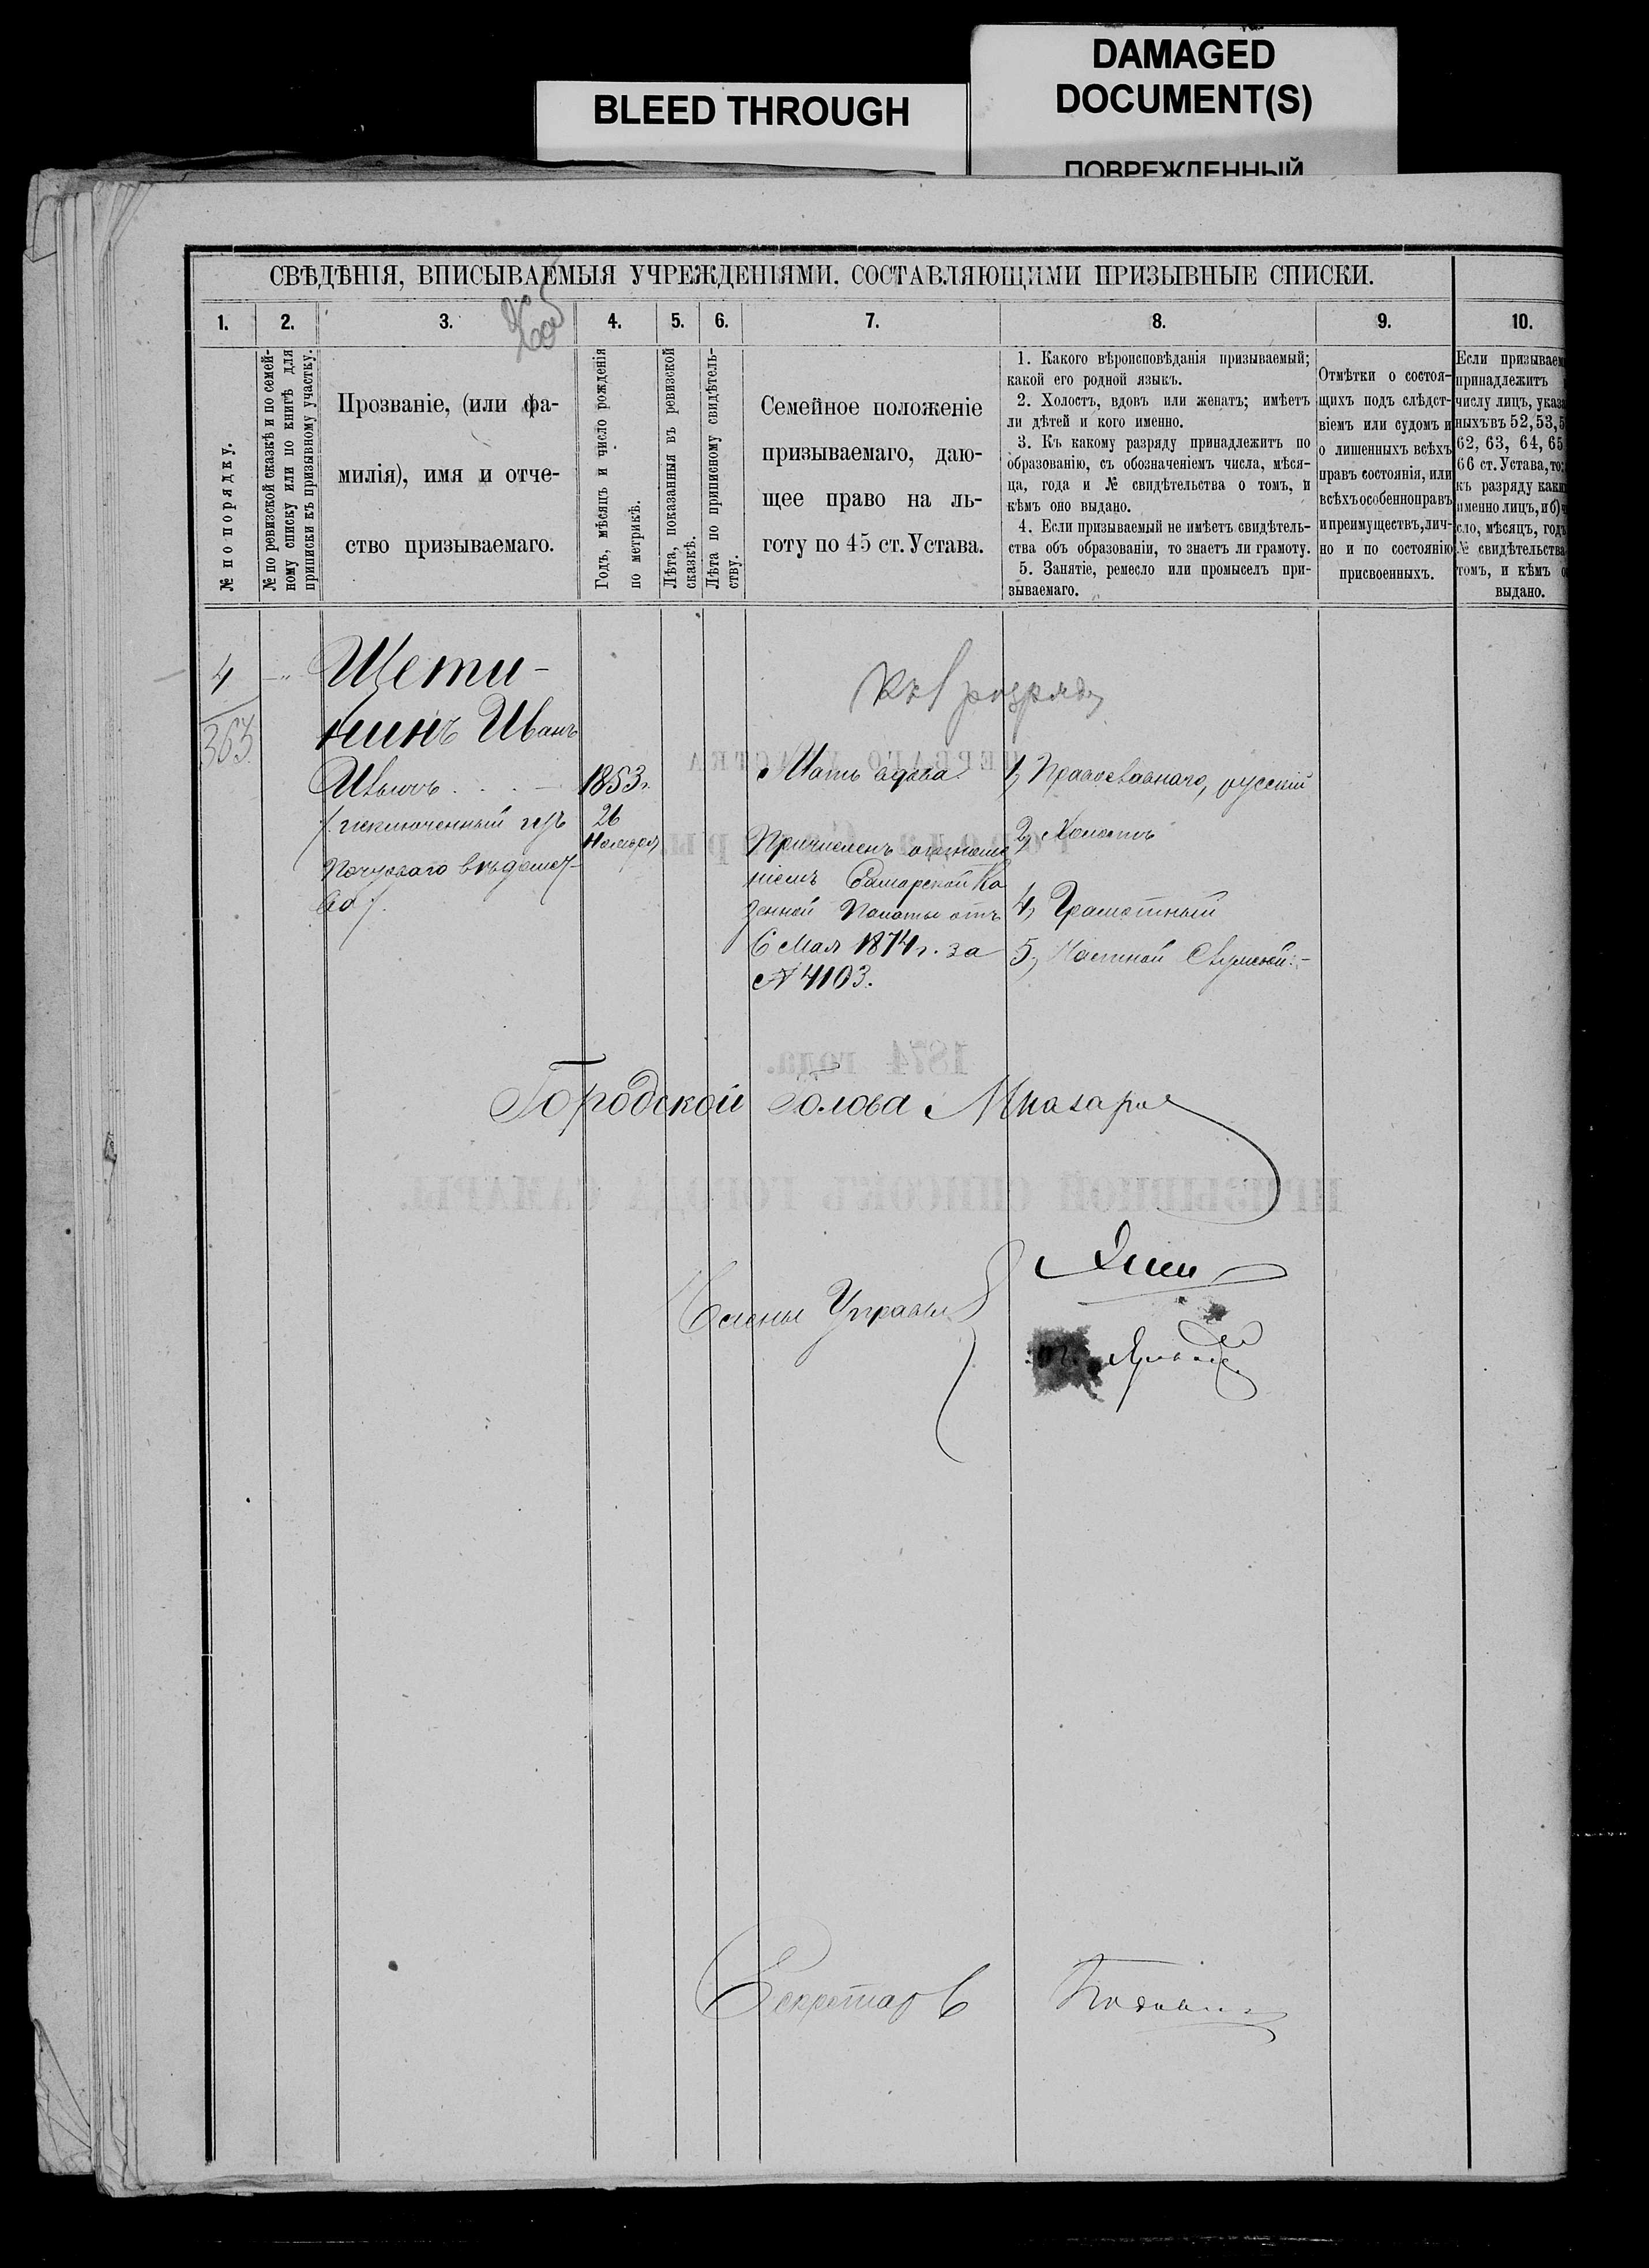 BLEED THROUGH
DAMAGED
DOCUMENT(S)
ПОВРЕЖДЕННЫЙ
СВѢДѢНІЯ, ВПИСЫВАЕМЫЯ УЧРЕЖДЕНІЯМИ, СОСТАВЛЯЮЩИМИ ПРИЗЫВНЫЕ СПИСКИ.
1. 2. 3. 4. 5. 6. 7. 8. 9. 10.
№ по порядку.
№ по ревизской сказкѣ и по семей-
ному списку или по книгѣ для
приписки къ призывному участку.
Прозваніе, (или фа-
милія), имя и отче-
ство призываемаго.
Годъ, мѣсяцъ и число рожденія
по метрикѣ.
Лѣта, показанныя въ ревизской
сказкѣ.
Лѣта по приписному свидѣтель-
ству.
Семейное положеніе
призываемаго, даю-
щее право на ль-
готу по 45 ст. Устава.
1. Какого вѣроисповѣданія призываемый;
какой его родной языкъ.
2. Холостъ, вдовъ или женатъ; имѣетъ
ли дѣтей и кого именно.
3. Къ какому разряду принадлежитъ по
образованію, съ обозначеніемъ числа, мѣся-
ца, года и № свидѣтельства о томъ, и
кѣмъ оно выдано.
4. Если призываемый не имѣетъ свидѣтель-
ства объ образованіи, то знаетъ ли грамоту.
5. Занятіе, ремесло или промыселъ при-
зываемаго.
Отмѣтки о состоя-
щихъ подъ слѣдст-
віемъ или судомъ и
о лишенныхъ всѣхъ
правъ состоянія, или
всѣхъ особенно правъ
и преимуществъ, лич-
но и по состоянію
присвоенныхъ.
Если призываем
принадлежитъ
числу лицъ, указа
ныхъ въ 52, 53, 5
62, 63, 64, 65
66 ст. Устава, то:
къ разряду каки
именно лицъ, и б) ч
сло, мѣсяцъ, годъ
№ свидѣтельства
томъ, и кѣмъ о
выдано.
4
363
Щети-
нинъ Иванъ
Ивычъ
/исключенный изъ
Почтоваго вѣдомст-
ва/.
1853 г.
26
Ноября
Къ 1 разряду
Мать вдова
Причисленъ отноше
ніемъ Самарской Ка
зенной Палаты отъ
6 Мая 1874 г. за
№ 4103.
1, Православнаго, русскій
2, Холостъ
4, Грамотный
5,
Городской Голова
Члены Управы
Секретарь